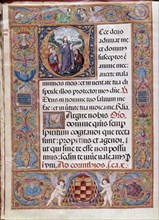 Cce deus
adiuuat me
et dominus
susceptor e
anime mee:
auerte mala
inimicis meis: et in ueritate tua di
sperde illos protector meus dñe.
Deus in nomine tuo saluum me
fac: et in uirtute tua iudica me.
Largire nobis
domine quesumus semper
spiritum cogitandi que recta
sunt: et agendi:
ut qui sine te esse non possu
mus: secundum te uiuere ualea
mus. Ad corinthios. i. ca. x.